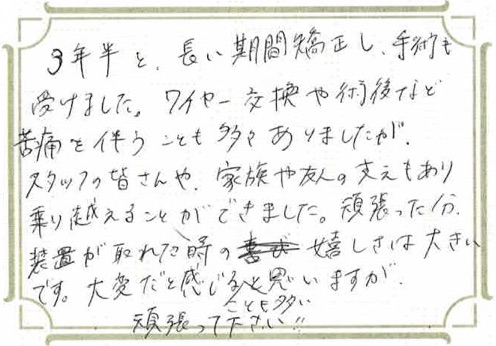 3年半と、長い期間矯正し、手術も
受けました。ワイヤー交換や術後など
苦痛を伴うことも多々ありましたが、
スタッフの皆さんや、家族や友人の支えもあり
乗り越えることができました。頑張った分、
装置が取れた時の嬉しさは大きい
です。大変だと感じることも多いと思いますが、
頑張って下さい!!